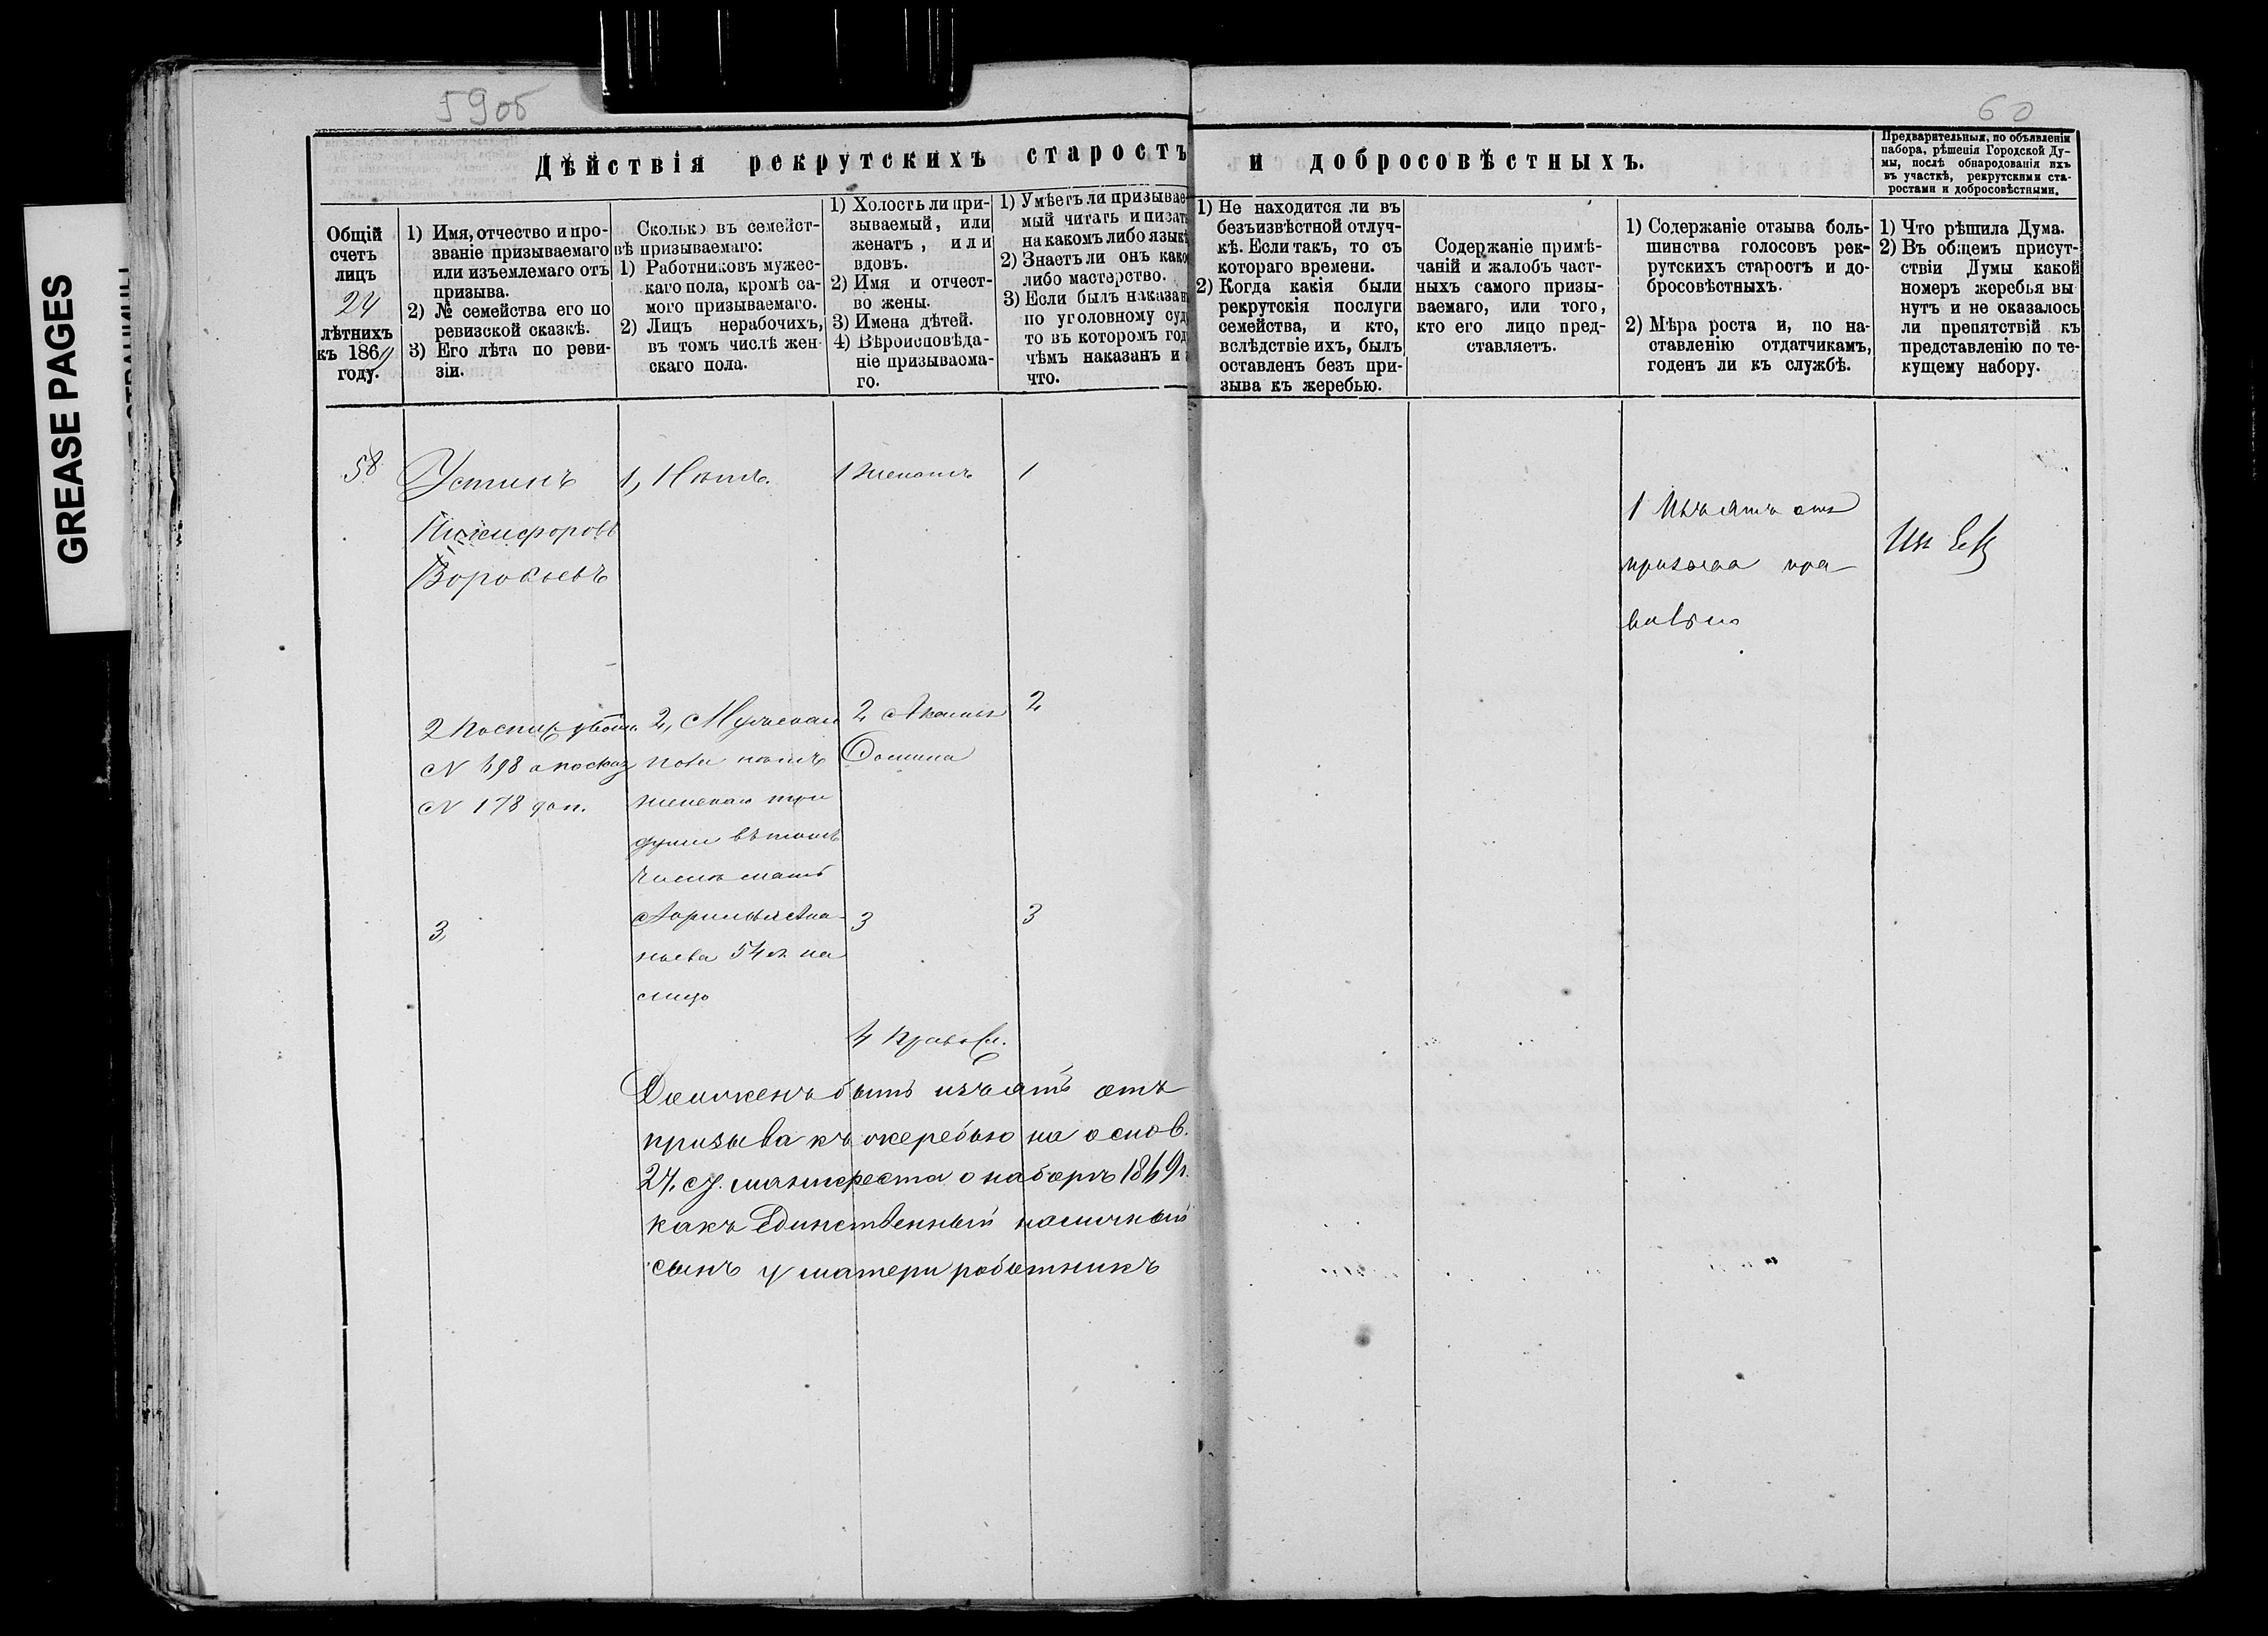 GREASE PAGES
59об
60
Дѣйствія рекрутскихъ старостъ и добросовѣстныхъ.
Предварительныя, по объявленіи
набора, рѣшенія Городской Ду-
мы, послѣ обнародованія ихъ
въ участкѣ, рекрутскими ста-
ростами и добросовѣстными.
Общій
счетъ
лицъ
24
лѣтнихъ
къ 1869
году.
1) Имя, отчество и про-
званіе призываемаго
или изъемлемаго отъ
призыва.
2) № семейства его по
ревизской сказкѣ.
3) Его лѣта по реви-
зіи.
Сколько въ семейст-
вѣ призываемаго:
1) Работниковъ мужес-
каго пола, кромѣ са-
мого призываемаго.
2) Лицъ нерабочихъ,
въ томъ числѣ жен-
скаго пола.
1) Холостъ ли при-
зываемый, или
женатъ, или
вдовъ.
2) Имя и отчест-
во жены.
3) Имена дѣтей.
4) Вѣроисповѣда-
ніе призываема-
го.
1) Умѣетъ ли призывае-
мый читать и писать
на какомъ либо языкѣ
2) Знаетъ ли онъ како
либо мастерство.
3) Если былъ наказанъ
по уголовному суд
то въ которомъ год
чѣмъ наказанъ и
что.
1) Не находится ли въ
безъизвѣстной отлуч-
кѣ. Если такъ, то съ
котораго времени.
2) Когда какія были
рекрутскія послуги
семейства, и кто,
вслѣдствіе ихъ, былъ
оставленъ безъ при-
зыва къ жеребью.
Содержаніе примѣ-
чаній и жалобъ част-
ныхъ самого призы-
ваемаго, или того,
кто его лицо пред-
ставляетъ.
1) Содержаніе отзыва боль-
шинства голосовъ рек-
рутскихъ старостъ и до-
бросовѣстныхъ.
2) Мѣра роста и, по на-
ставленію отдатчикамъ,
годенъ ли къ службѣ.
1) Что рѣшила Дума.
2) Въ общемъ присут-
ствіи Думы какой
номеръ жеребья вы
нутъ и не оказалось
ли препятствій къ
представленію по те-
кущему набору.
58
Устинъ
Никифоровъ
2
№ 698 а по сказ
№ 178 доп.
3,
1, Нѣтъ.
2, Мужеска
пола нѣтъ
женска три
души въ томъ
числѣ мать
54 л. на
лицо
1 женатъ
2
Фомина
3
4 Правосл.
1
2
3
Долженъ быть изъятъ отъ
призыва къ жеребью на основ.
24. ст. манифеста о наборѣ 1869 г.
какъ единственный наличный
сынъ у матери работникъ
1 Изъятъ отъ
призыва пра
вильно